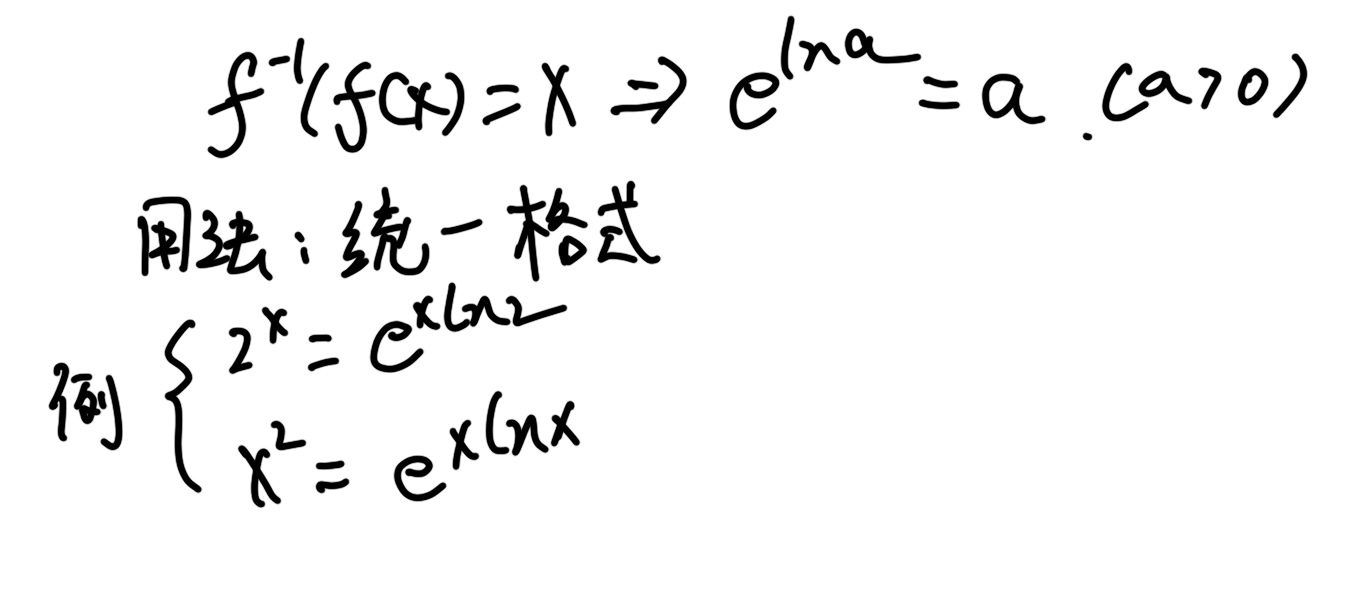 f⁻¹(f(x)=x ⇒ e^{lna}=a.(a>0)
用法:统一格式
例 { 2^x = e^{xln2}
x² = e^{xlnx}